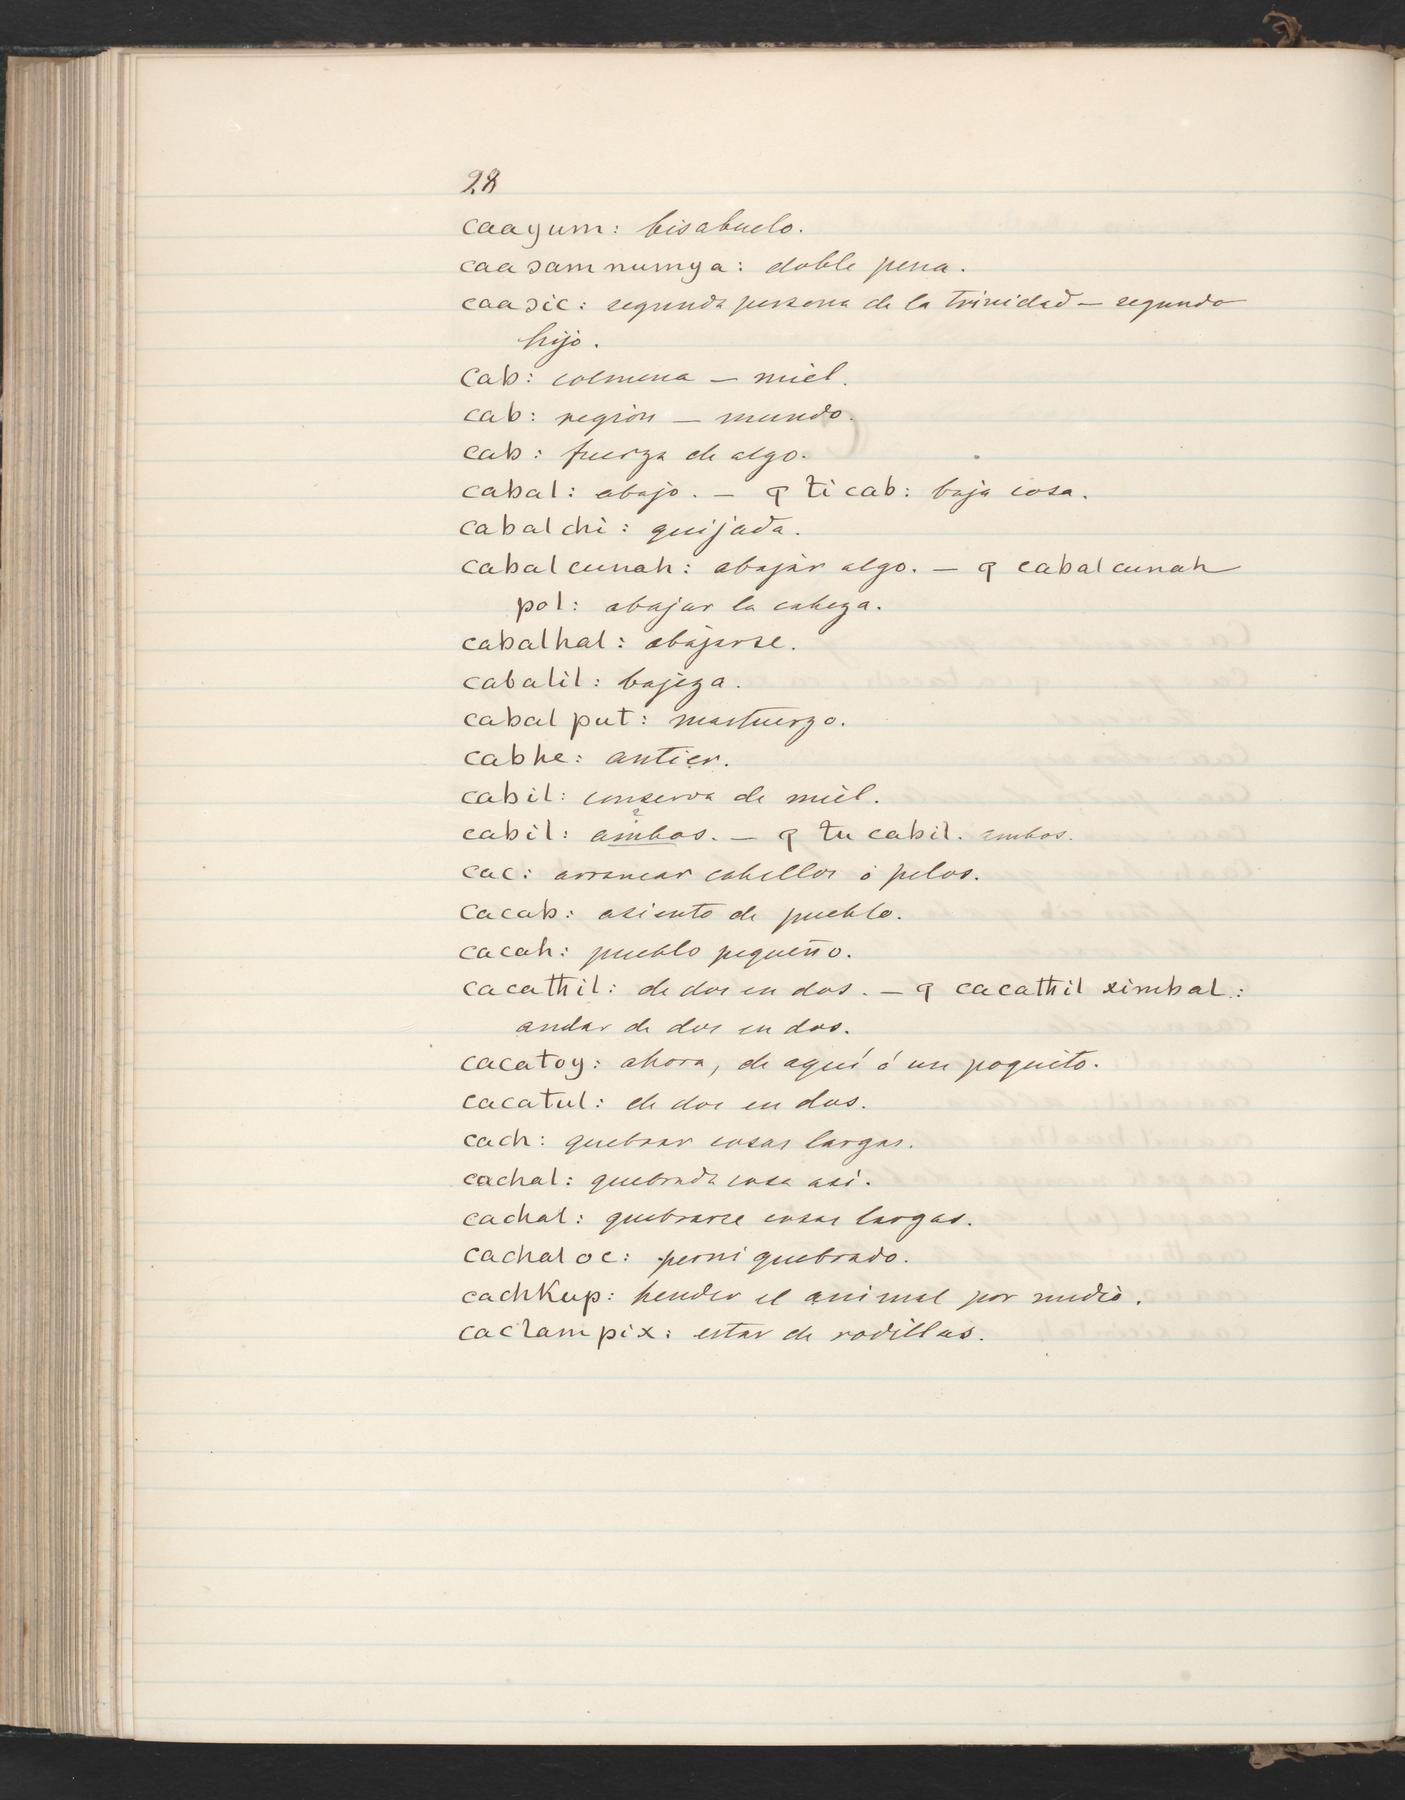 28
caayum: bisabuelo.
caaɔamnumya: doble pena.
caaɔic: segunda persona de la trinidad — segundo
hijo.
cab: colmena — miel.
cab: region — mundo.
cab: fuerza de algo.
cabal: abajo. — ꟼ ti cab: baja cosa.
cabal chi: quijada.
cabalcunah: abajar algo. — ꟼ cabalcunah
pol: abajar la cabeza.
cabalhal: abajarse.
cabalil: bajeza.
cabal put: mastuerzo.
cabhe: antier.
cabil: conserva de miel.
cabil: ambos. — ꟼ tu cabil. ambos.
cac: arrancar cabellos ó pelos.
cacab: asiento de pueblo.
cacah: pueblo pequeño.
cacathil: de dos en dos. — ꟼ cacathil ximbal:
andar de dos en dos.
cacatoy: ahora, de aquí á un poquito.
cacatul: de dos en dos.
cach: quebrar cosas largas.
cachal: quebrada cosa asi.
cachal: quebrarse cosas largas.
cachal oc: perniquebrado.
cachkup: hender el animal por medio.
caclam pix: estar de rodillas.